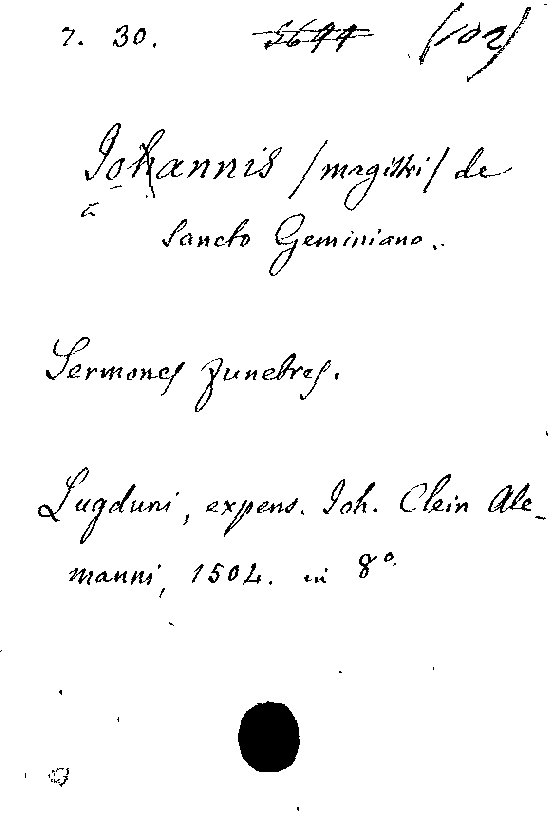 7. 30. 5644 (102)
Johannis /magistri/ de
Sancto Geminiano.
Sermones funebres.
Lugduni, expens. Joh. Clein Ale-
manni, 1504. in 8º.